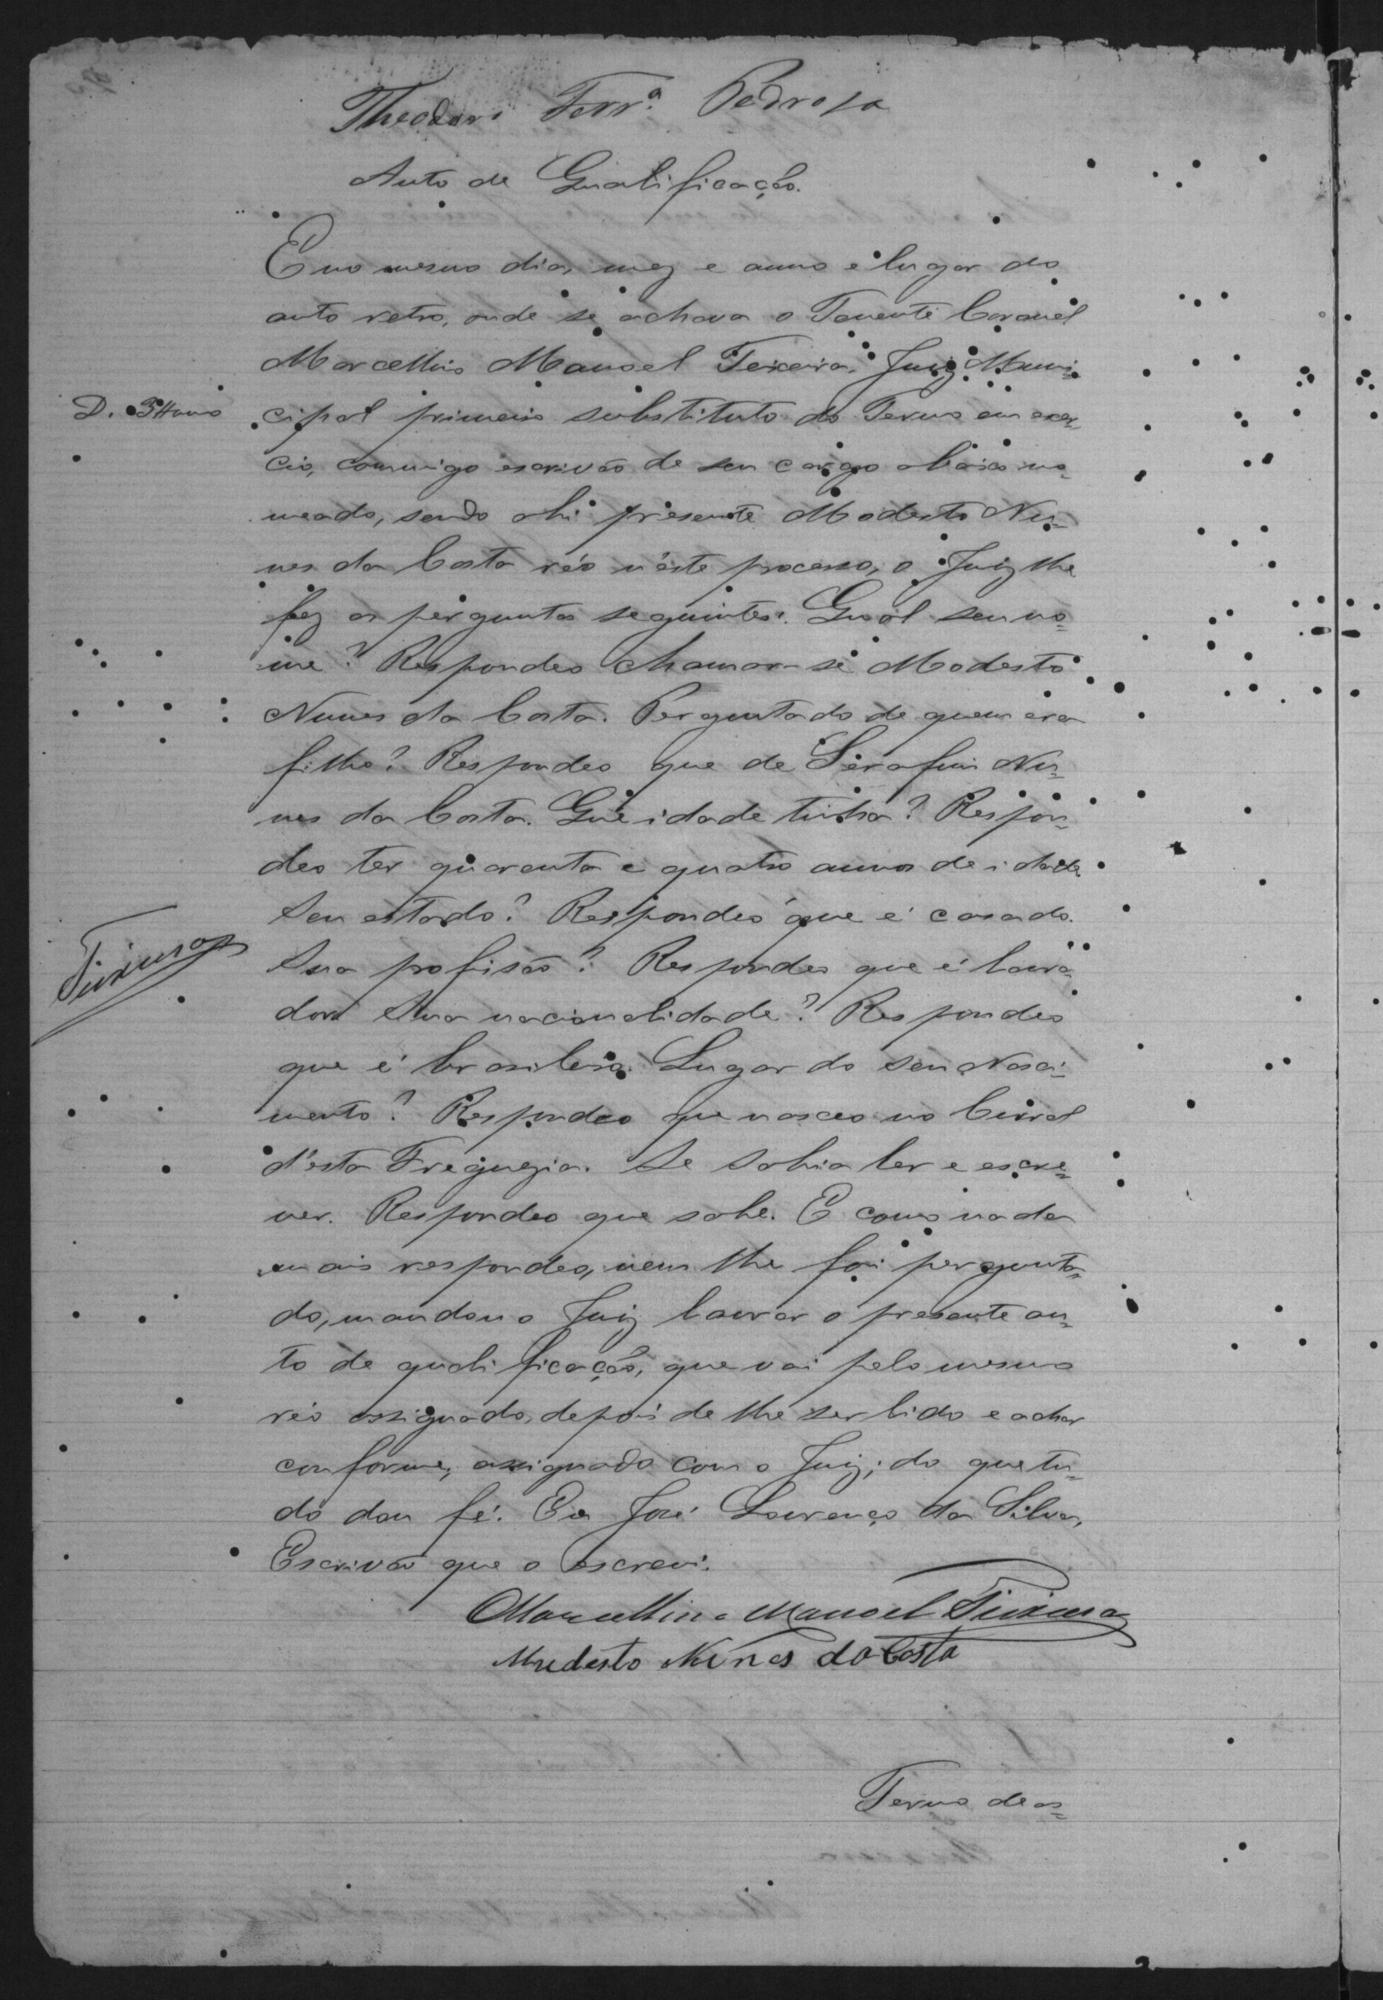 Theodoro Ferrª Pedrosa
Auto de Qualificação.
E no mesmo dia, mez e anno e lugar do
auto retro, onde se achava o Tenente Coronel
Marcellino Manoel Teixeira, Juiz Muni-
D.
cipal primeiro substituto do Termo em exer-
cio, commigo escrivão de seu cargo abaixo no-
meado, sendo ahi presente Modesto Nu-
nes da Costa réo n'este processo, o Juiz lhe
fez as perguntas seguintes: Qual seu no-
me? Respondeo chamar-se Modesto
Nunes da Costa. Perguntado de quem era
filho? Respondeo que de Serafim Nu-
nes da Costa. Que idade tinha? Respon-
deo ter quarenta e quatro annos de idade
Seu estado? Respondeo que é casado.
Teixeira
Sua profisão? Respondeo que é lavra-
dor. Sua nacionalidade? Respondeo
que é brasileiro. Lugar do seu Nasci-
mento? Respondeo que nasceo no Curral
d'esta Freguezia. Se sabia ler e escre-
ver. Respondeo que sabe. E como nada
mais respondeo, nem lhe foi pergunta-
do, mandou o Juiz lavrar o presente au-
to de qualificação, que vai pelo mesmo
réo assignado, depois de lhe ser lido e achar
conforme, assignado com o Juiz; do que tu-
do dou fé. Eu José Lourenço da Silva,
Escrivão que o escrevi.
Marcellino Manoel Teixeira
Mudesto Nunes da Costa
Termo de as-